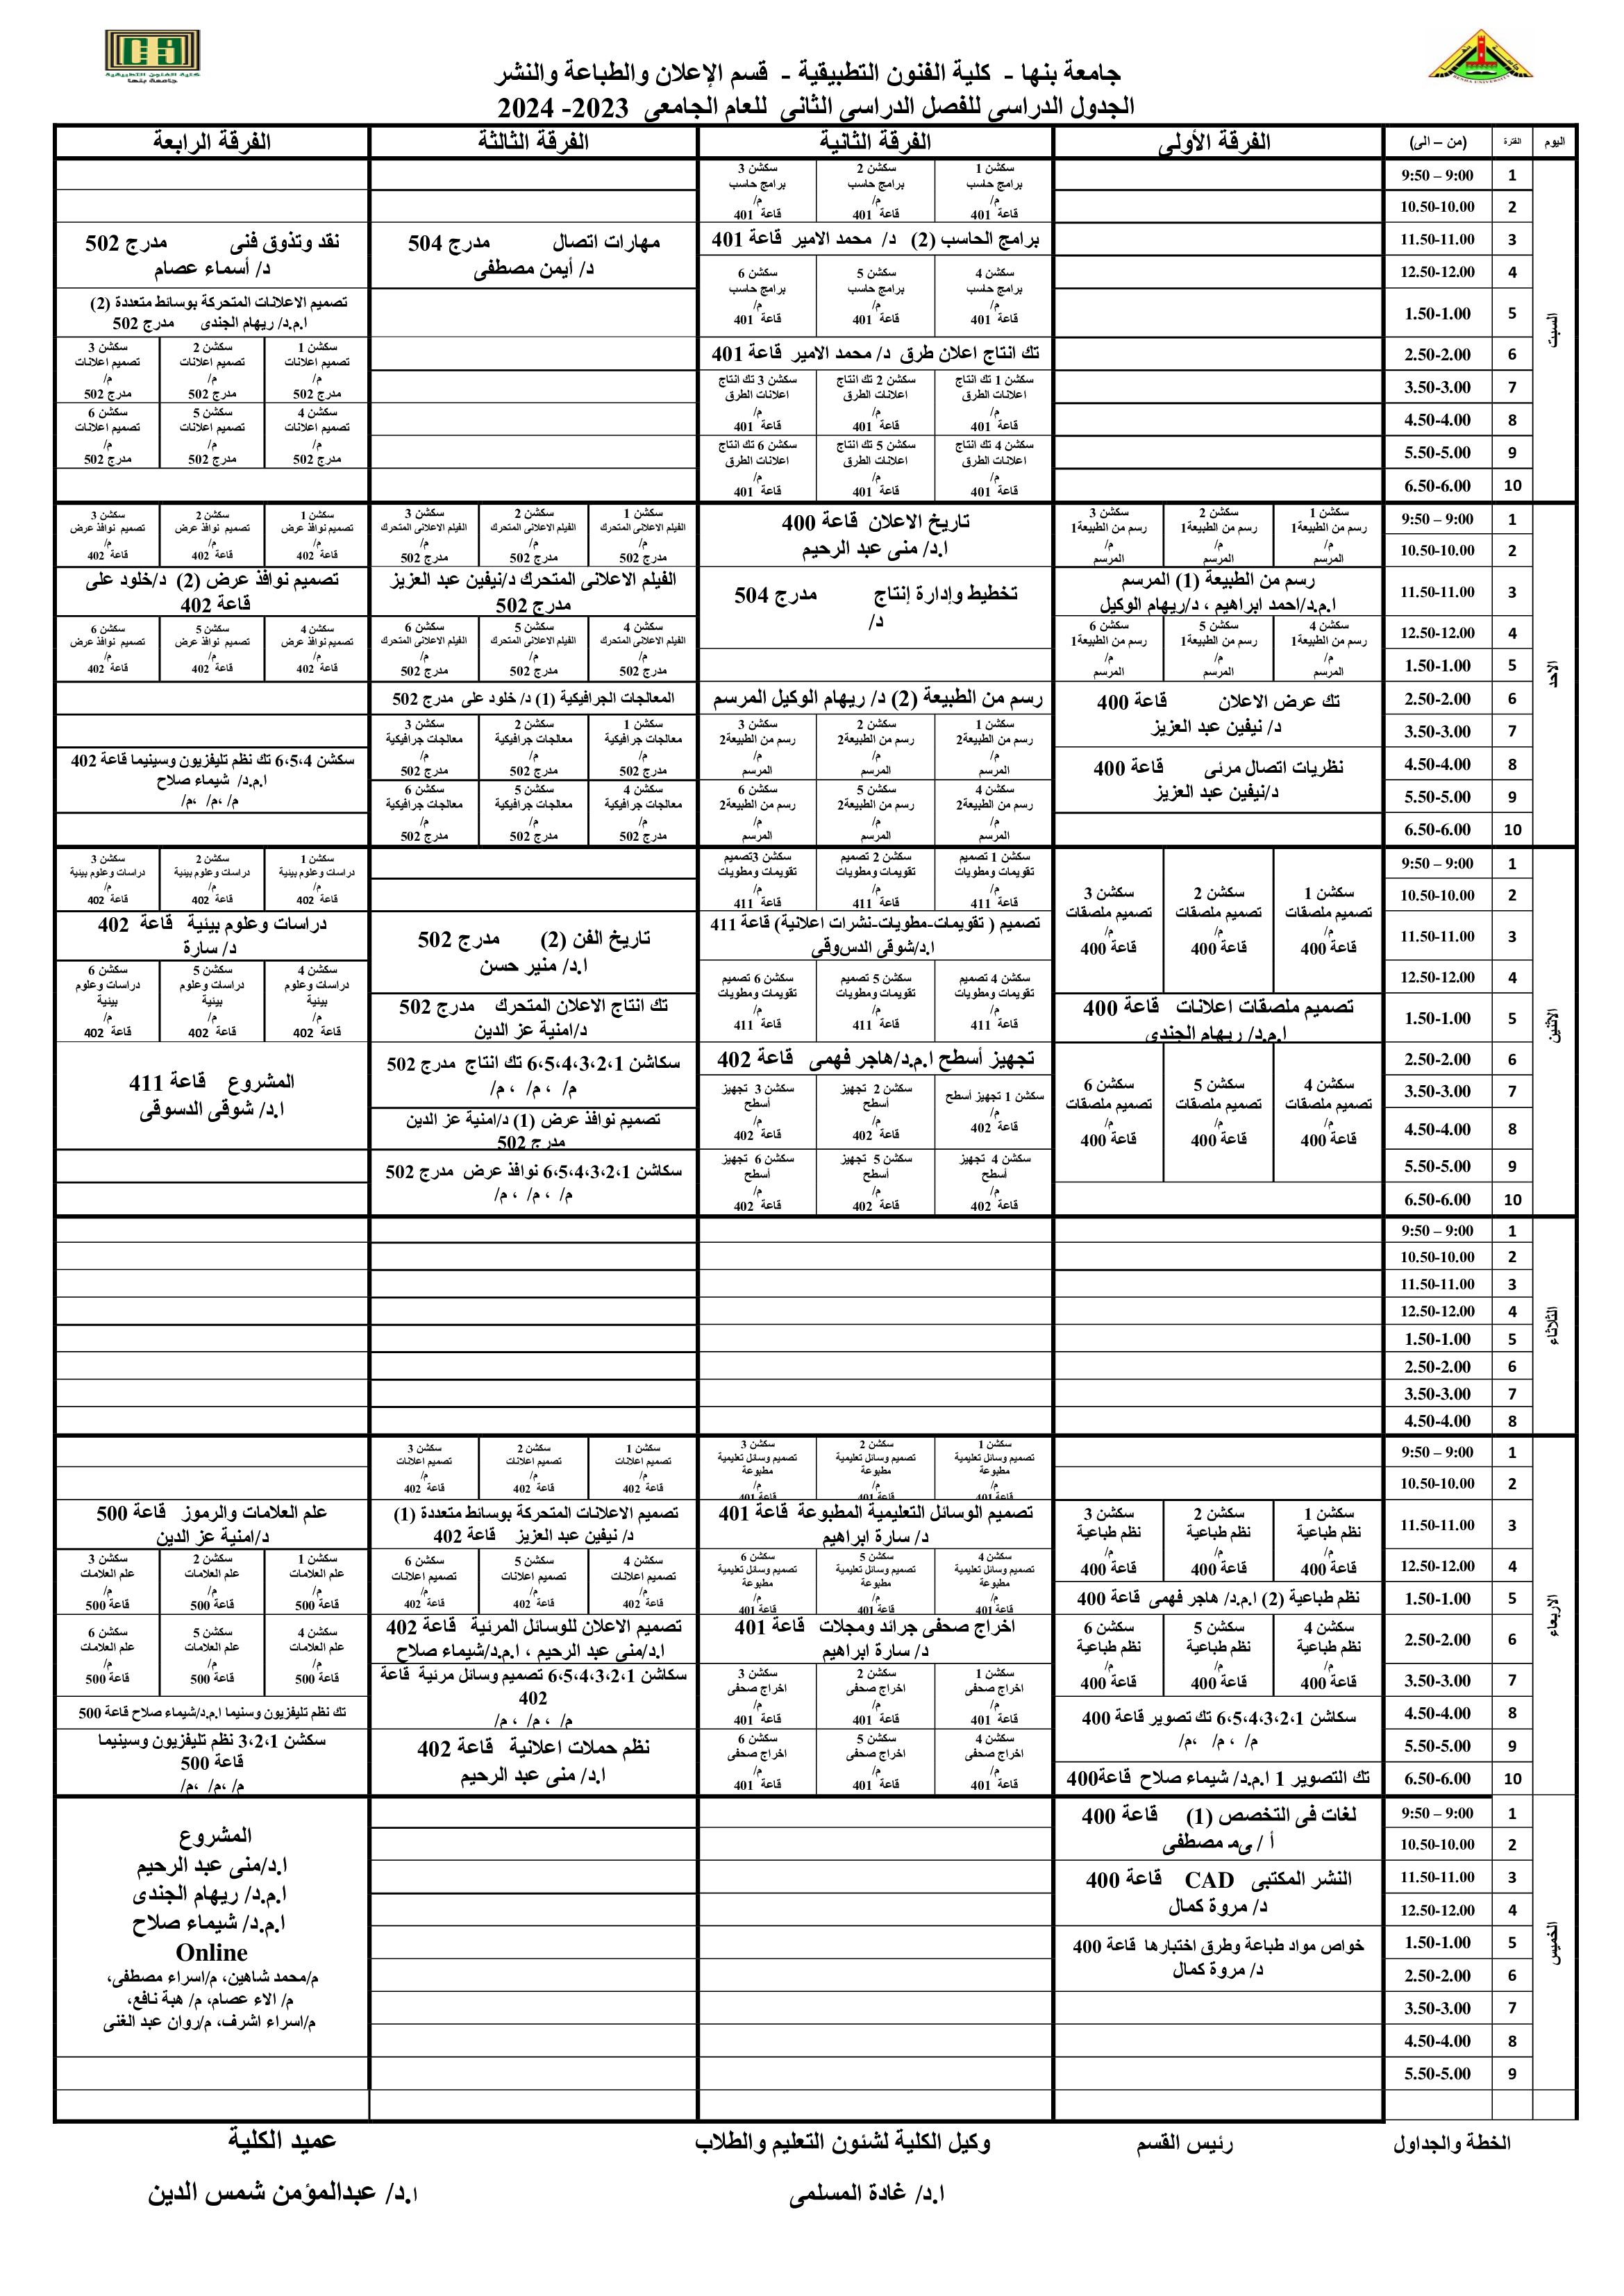 جامعة بنها - كلية الفنون التطبيقية - قسم الإعلان والطباعة والنشر
الجدول الدراسى للفصل الدراسى الثانى للعام الجامعى 2023- 2024
اليوم
الفترة
(من – الى)
الفرقة الأولى
الفرقة الثانية
الفرقة الثالثة
الفرقة الرابعة
السبت
1
9:50 – 9:00
2
10.50-10.00
3
11.50-11.00
4
12.50-12.00
5
1.50-1.00
6
2.50-2.00
7
3.50-3.00
8
4.50-4.00
9
5.50-5.00
10
6.50-6.00
سكشن 1
برامج حاسب
م/
قاعة 401
سكشن 2
برامج حاسب
م/
قاعة 401
سكشن 3
برامج حاسب
م/
قاعة 401
برامج الحاسب (2) د/ محمد الامير قاعة 401
سكشن 4
برامج حاسب
م/
قاعة 401
سكشن 5
برامج حاسب
م/
قاعة 401
سكشن 6
برامج حاسب
م/
قاعة 401
تك انتاج اعلان طرق د/ محمد الامير قاعة 401
سكشن 1 تك انتاج
اعلانات الطرق
م/
قاعة 401
سكشن 2 تك انتاج
اعلانات الطرق
م/
قاعة 401
سكشن 3 تك انتاج
اعلانات الطرق
م/
قاعة 401
سكشن 4 تك انتاج
اعلانات الطرق
م/
قاعة 401
سكشن 5 تك انتاج
اعلانات الطرق
م/
قاعة 401
سكشن 6 تك انتاج
اعلانات الطرق
م/
قاعة 401
مهارات اتصال مدرج 504
د/ أيمن مصطفى
نقد وتذوق فنى مدرج 502
د/ أسماء عصام
تصميم الاعلانات المتحركة بوسائط متعددة (2)
ا.م.د/ ريهام الجندى مدرج 502
سكشن 1
تصميم اعلانات
م/
مدرج 502
سكشن 2
تصميم اعلانات
م/
مدرج 502
سكشن 3
تصميم اعلانات
م/
مدرج 502
سكشن 4
تصميم اعلانات
م/
مدرج 502
سكشن 5
تصميم اعلانات
م/
مدرج 502
سكشن 6
تصميم اعلانات
م/
مدرج 502
الاحد
1
9:50 – 9:00
2
10.50-10.00
3
11.50-11.00
4
12.50-12.00
5
1.50-1.00
6
2.50-2.00
7
3.50-3.00
8
4.50-4.00
9
5.50-5.00
10
6.50-6.00
سكشن 1
رسم من الطبيعة1
م/
المرسم
سكشن 2
رسم من الطبيعة1
م/
المرسم
سكشن 3
رسم من الطبيعة1
م/
المرسم
رسم من الطبيعة (1) المرسم
ا.م.د/احمد ابراهيم ، د/ريهام الوكيل
سكشن 4
رسم من الطبيعة1
م/
المرسم
سكشن 5
رسم من الطبيعة1
م/
المرسم
سكشن 6
رسم من الطبيعة1
م/
المرسم
تك عرض الاعلان قاعة 400
د/ نيفين عبد العزيز
نظريات اتصال مرئى قاعة 400
د/نيفين عبد العزيز
تاريخ الاعلان قاعة 400
ا.د/ منى عبد الرحيم
تخطيط وإدارة إنتاج مدرج 504
د/
رسم من الطبيعة (2) د/ ريهام الوكيل المرسم
سكشن 1
رسم من الطبيعة2
م/
المرسم
سكشن 2
رسم من الطبيعة2
م/
المرسم
سكشن 3
رسم من الطبيعة2
م/
المرسم
سكشن 4
رسم من الطبيعة2
م/
المرسم
سكشن 5
رسم من الطبيعة2
م/
المرسم
سكشن 6
رسم من الطبيعة2
م/
المرسم
سكشن 1
الفيلم الاعلانى المتحرك
م/
مدرج 502
سكشن 2
الفيلم الاعلانى المتحرك
م/
مدرج 502
سكشن 3
الفيلم الاعلانى المتحرك
م/
مدرج 502
الفيلم الاعلانى المتحرك د/نيفين عبد العزيز
مدرج 502
سكشن 4
الفيلم الاعلانى المتحرك
م/
مدرج 502
سكشن 5
الفيلم الاعلانى المتحرك
م/
مدرج 502
سكشن 6
الفيلم الاعلانى المتحرك
م/
مدرج 502
المعالجات الجرافيكية (1) د/ خلود على مدرج 502
سكشن 1
معالجات جرافيكية
م/
مدرج 502
سكشن 2
معالجات جرافيكية
م/
مدرج 502
سكشن 3
معالجات جرافيكية
م/
مدرج 502
سكشن 4
معالجات جرافيكية
م/
مدرج 502
سكشن 5
معالجات جرافيكية
م/
مدرج 502
سكشن 6
معالجات جرافيكية
م/
مدرج 502
سكشن 1
تصميم نوافذ عرض
م/
قاعة 402
سكشن 2
تصميم نوافذ عرض
م/
قاعة 402
سكشن 3
تصميم نوافذ عرض
م/
قاعة 402
تصميم نوافذ عرض (2) د/خلود على
قاعة 402
سكشن 4
تصميم نوافذ عرض
م/
قاعة 402
سكشن 5
تصميم نوافذ عرض
م/
قاعة 402
سكشن 6
تصميم نوافذ عرض
م/
قاعة 402
سكشن 6،5،4 تك نظم تليفزيون وسينيما قاعة 402
ا.م.د/ شيماء صلاح
م/ ،م/ ،م/
الاثنين
1
9:50 – 9:00
2
10.50-10.00
3
11.50-11.00
4
12.50-12.00
5
1.50-1.00
6
2.50-2.00
7
3.50-3.00
8
4.50-4.00
9
5.50-5.00
10
6.50-6.00
سكشن 1
تصميم ملصقات
م/
قاعة 400
سكشن 2
تصميم ملصقات
م/
قاعة 400
سكشن 3
تصميم ملصقات
م/
قاعة 400
تصميم ملصقات اعلانات قاعة 400
ا.م.د/ ريهام الجندى
سكشن 4
تصميم ملصقات
م/
قاعة 400
سكشن 5
تصميم ملصقات
م/
قاعة 400
سكشن 6
تصميم ملصقات
م/
قاعة 400
سكشن 1 تصميم
تقويمات ومطويات
م/
قاعة 411
سكشن 2 تصميم
تقويمات ومطويات
م/
قاعة 411
سكشن 3تصميم
تقويمات ومطويات
م/
قاعة 411
تصميم ( تقويمات-مطويات-نشرات اعلانية) قاعة 411
ا.د/شوقى الدسوقى
سكشن 4 تصميم
تقويمات ومطويات
م/
قاعة 411
سكشن 5 تصميم
تقويمات ومطويات
م/
قاعة 411
سكشن 6 تصميم
تقويمات ومطويات
م/
قاعة 411
تجهيز أسطح ا.م.د/هاجر فهمى قاعة 402
سكشن 1 تجهيز أسطح
م/
قاعة 402
سكشن 2 تجهيز
أسطح
م/
قاعة 402
سكشن 3 تجهيز
أسطح
م/
قاعة 402
سكشن 4 تجهيز
أسطح
م/
قاعة 402
سكشن 5 تجهيز
أسطح
م/
قاعة 402
سكشن 6 تجهيز
أسطح
م/
قاعة 402
تاريخ الفن (2) مدرج 502
ا.د/ منير حسن
تك انتاج الاعلان المتحرك مدرج 502
د/امنية عز الدين
سكاشن 6،5،4،3،2،1 تك انتاج مدرج 502
م/ ، م/ ، م/
تصميم نوافذ عرض (1) د/امنية عز الدين
مدرج 502
سكاشن 6،5،4،3،2،1 نوافذ عرض مدرج 502
م/ ، م/ ، م/
سكشن 1
دراسات وعلوم بيئية
م/
قاعة 402
سكشن 2
دراسات وعلوم بيئية
م/
قاعة 402
سكشن 3
دراسات وعلوم بيئية
م/
قاعة 402
دراسات وعلوم بيئية قاعة 402
د/ سارة
سكشن 4
دراسات وعلوم
بيئية
م/
قاعة 402
سكشن 5
دراسات وعلوم
بيئية
م/
قاعة 402
سكشن 6
دراسات وعلوم
بيئية
م/
قاعة 402
المشروع قاعة 411
ا.د/ شوقى الدسوقى
الثلاثاء
1
9:50 – 9:00
2
10.50-10.00
3
11.50-11.00
4
12.50-12.00
5
1.50-1.00
6
2.50-2.00
7
3.50-3.00
8
4.50-4.00
الاربعاء
1
9:50 – 9:00
2
10.50-10.00
3
11.50-11.00
4
12.50-12.00
5
1.50-1.00
6
2.50-2.00
7
3.50-3.00
8
4.50-4.00
9
5.50-5.00
10
6.50-6.00
سكشن 1
نظم طباعية
م/
قاعة 400
سكشن 2
نظم طباعية
م/
قاعة 400
سكشن 3
نظم طباعية
م/
قاعة 400
نظم طباعية (2) ا.م.د/ هاجر فهمى قاعة 400
سكشن 4
نظم طباعية
م/
قاعة 400
سكشن 5
نظم طباعية
م/
قاعة 400
سكشن 6
نظم طباعية
م/
قاعة 400
سكاشن 6،5،4،3،2،1 تك تصوير قاعة 400
م/ ، م/ ،م/
تك التصوير 1 ا.م.د/ شيماء صلاح قاعة400
سكشن 1
تصميم وسائل تعليمية
مطبوعة
م/
قاعة 401
سكشن 2
تصميم وسائل تعليمية
مطبوعة
م/
قاعة 401
سكشن 3
تصميم وسائل تعليمية
مطبوعة
م/
قاعة 401
تصميم الوسائل التعليمية المطبوعة قاعة 401
د/ سارة ابراهيم
سكشن 4
تصميم وسائل تعليمية
مطبوعة
م/
قاعة 401
سكشن 5
تصميم وسائل تعليمية
مطبوعة
م/
قاعة 401
سكشن 6
تصميم وسائل تعليمية
مطبوعة
م/
قاعة 401
اخراج صحفى جرائد ومجلات قاعة 401
د/ سارة ابراهيم
سكشن 1
اخراج صحفى
م/
قاعة 401
سكشن 2
اخراج صحفى
م/
قاعة 401
سكشن 3
اخراج صحفى
م/
قاعة 401
سكشن 4
اخراج صحفى
م/
قاعة 401
سكشن 5
اخراج صحفى
م/
قاعة 401
سكشن 6
اخراج صحفى
م/
قاعة 401
سكشن 1
تصميم اعلانات
م/
قاعة 402
سكشن 2
تصميم اعلانات
م/
قاعة 402
سكشن 3
تصميم اعلانات
م/
قاعة 402
تصميم الاعلانات المتحركة بوسائط متعددة (1)
د/ نيفين عبد العزيز قاعة 402
سكشن 4
تصميم اعلانات
م/
قاعة 402
سكشن 5
تصميم اعلانات
م/
قاعة 402
سكشن 6
تصميم اعلانات
م/
قاعة 402
تصميم الاعلان للوسائل المرئية قاعة 402
ا.د/منى عبد الرحيم ، ا.م.د/شيماء صلاح
سكاشن 6،5،4،3،2،1 تصميم وسائل مرئية قاعة
402
م/ ، م/ ، م/
نظم حملات اعلانية قاعة 402
ا.د/ منى عبد الرحيم
علم العلامات والرموز قاعة 500
د/امنية عز الدين
سكشن 1
علم العلامات
م/
قاعة 500
سكشن 2
علم العلامات
م/
قاعة 500
سكشن 3
علم العلامات
م/
قاعة 500
سكشن 4
علم العلامات
م/
قاعة 500
سكشن 5
علم العلامات
م/
قاعة 500
سكشن 6
علم العلامات
م/
قاعة 500
تك نظم تليفزيون وسنيما ا.م.د/شيماء صلاح قاعة 500
سكشن 3،2،1 نظم تليفزيون وسينيما
قاعة 500
م/ ،م/ ،م/
الخميس
1
9:50 – 9:00
2
10.50-10.00
3
11.50-11.00
4
12.50-12.00
5
1.50-1.00
6
2.50-2.00
7
3.50-3.00
8
4.50-4.00
9
5.50-5.00
لغات فى التخصص (1) قاعة 400
أ / مصطفى
النشر المكتبى CAD قاعة 400
د/ مروة كمال
خواص مواد طباعة وطرق اختبارها قاعة 400
د/ مروة كمال
المشروع
ا.د/منى عبد الرحيم
ا.م.د/ ريهام الجندى
ا.م.د/ شيماء صلاح
Online
م/محمد شاهين، م/اسراء مصطفى،
م/ الاء عصام، م/ هبة نافع،
م/اسراء اشرف، م/روان عبد الغنى
الخطة والجداول
رئيس القسم
وكيل الكلية لشئون التعليم والطلاب
عميد الكلية
ا.د/ غادة المسلمى
ا.د/ عبدالمؤمن شمس الدين